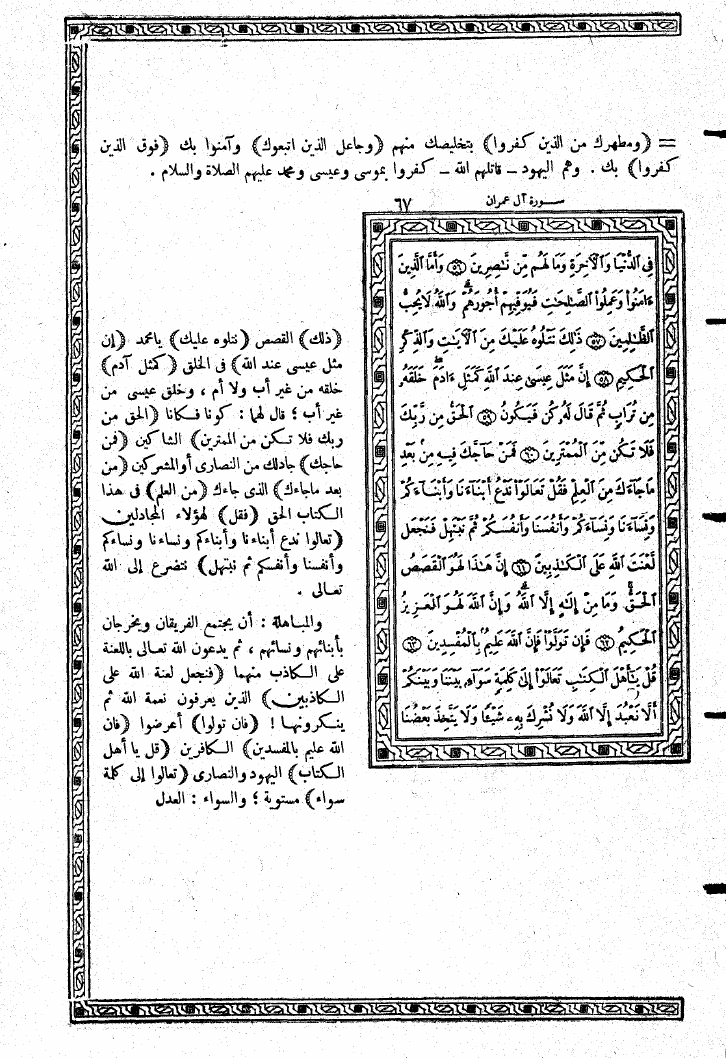 = ﴿ومطهرك من الذين كفروا﴾ بتخليصك منهم ﴿وجاعل الذين اتبعوك﴾ وآمنوا بك ﴿فوق الذين
كفروا﴾ بك . وهم اليهود ــ قاتلهم الله ــ كفروا بموسى وعيسى ومحمد عليهم الصلاة والسلام .
سورة آل عمران ٦٧
فِي الدُّنْيَا وَالْآخِرَةِ وَمَا لَهُم مِّن نَّاصِرِينَ ﴿٥٦﴾ وَأَمَّا الَّذِينَ
ءَامَنُوا وَعَمِلُوا الصَّالِحَاتِ فَيُوَفِّيهِمْ أُجُورَهُمْ وَاللَّهُ لَا يُحِبُّ
الظَّالِمِينَ ﴿٥٧﴾ ذَٰلِكَ نَتْلُوهُ عَلَيْكَ مِنَ الْآيَاتِ وَالذِّكْرِ
الْحَكِيمِ ﴿٥٨﴾ إِنَّ مَثَلَ عِيسَىٰ عِندَ اللَّهِ كَمَثَلِ ءَادَمَ خَلَقَهُ
مِن تُرَابٍ ثُمَّ قَالَ لَهُ كُن فَيَكُونُ ﴿٥٩﴾ الْحَقُّ مِن رَّبِّكَ
فَلَا تَكُن مِّنَ الْمُمْتَرِينَ ﴿٦٠﴾ فَمَنْ حَاجَّكَ فِيهِ مِن بَعْدِ
مَا جَاءَكَ مِنَ الْعِلْمِ فَقُلْ تَعَالَوْا نَدْعُ أَبْنَاءَنَا وَأَبْنَاءَكُمْ
وَنِسَاءَنَا وَنِسَاءَكُمْ وَأَنفُسَنَا وَأَنفُسَكُمْ ثُمَّ نَبْتَهِلْ فَنَجْعَل
لَّعْنَتَ اللَّهِ عَلَى الْكَاذِبِينَ ﴿٦١﴾ إِنَّ هَٰذَا لَهُوَ الْقَصَصُ
الْحَقُّ وَمَا مِنْ إِلَٰهٍ إِلَّا اللَّهُ وَإِنَّ اللَّهَ لَهُوَ الْعَزِيزُ
الْحَكِيمُ ﴿٦٢﴾ فَإِن تَوَلَّوْا فَإِنَّ اللَّهَ عَلِيمٌ بِالْمُفْسِدِينَ ﴿٦٣﴾
قُلْ يَا أَهْلَ الْكِتَابِ تَعَالَوْا إِلَىٰ كَلِمَةٍ سَوَاءٍ بَيْنَنَا وَبَيْنَكُمْ
أَلَّا نَعْبُدَ إِلَّا اللَّهَ وَلَا نُشْرِكَ بِهِ شَيْئًا وَلَا يَتَّخِذَ بَعْضُنَا
﴿ذلك﴾ القصص ﴿نتلوه عليك﴾ يا محمد ﴿إن
مثل عيسى عند الله﴾ فى الخلق ﴿كمثل آدم﴾
خلقه من غير أب ولا أم ، وخلق عيسى من
غير أب ؛ قال لهما : كونا فكانا ﴿الحق من
ربك فلا تكن من الممترين﴾ الشاكين ﴿فمن
حاجك﴾ جادلك من النصارى أو المشركين ﴿من
بعد ماجاءك﴾ الذى جاءك ﴿من العلم﴾ فى هذا
الكتاب الحق ﴿فقل﴾ لهؤلاء المجادلين
﴿تعالوا ندع أبناءنا وأبناءكم ونساءنا ونساءكم
وأنفسنا وأنفسكم ثم نبتهل﴾ نتضرع إلى الله
تعالى .
والمباهلة : أن يجتمع الفريقان ويخرجان
بأبنائهم ونسائهم ، ثم يدعون الله تعالى باللعنة
على الكاذب منهما ﴿فنجعل لعنة الله على
الكاذبين﴾ الذين يعرفون نعمة الله ثم
ينكرونها ! ﴿فان تولوا﴾ أعرضوا ﴿فان
الله عليم بالمفسدين﴾ الكافرين ﴿قل يا أهل
الكتاب﴾ اليهود والنصارى ﴿تعالوا إلى كلمة
سواء﴾ مستوية ؛ والسواء : العدل